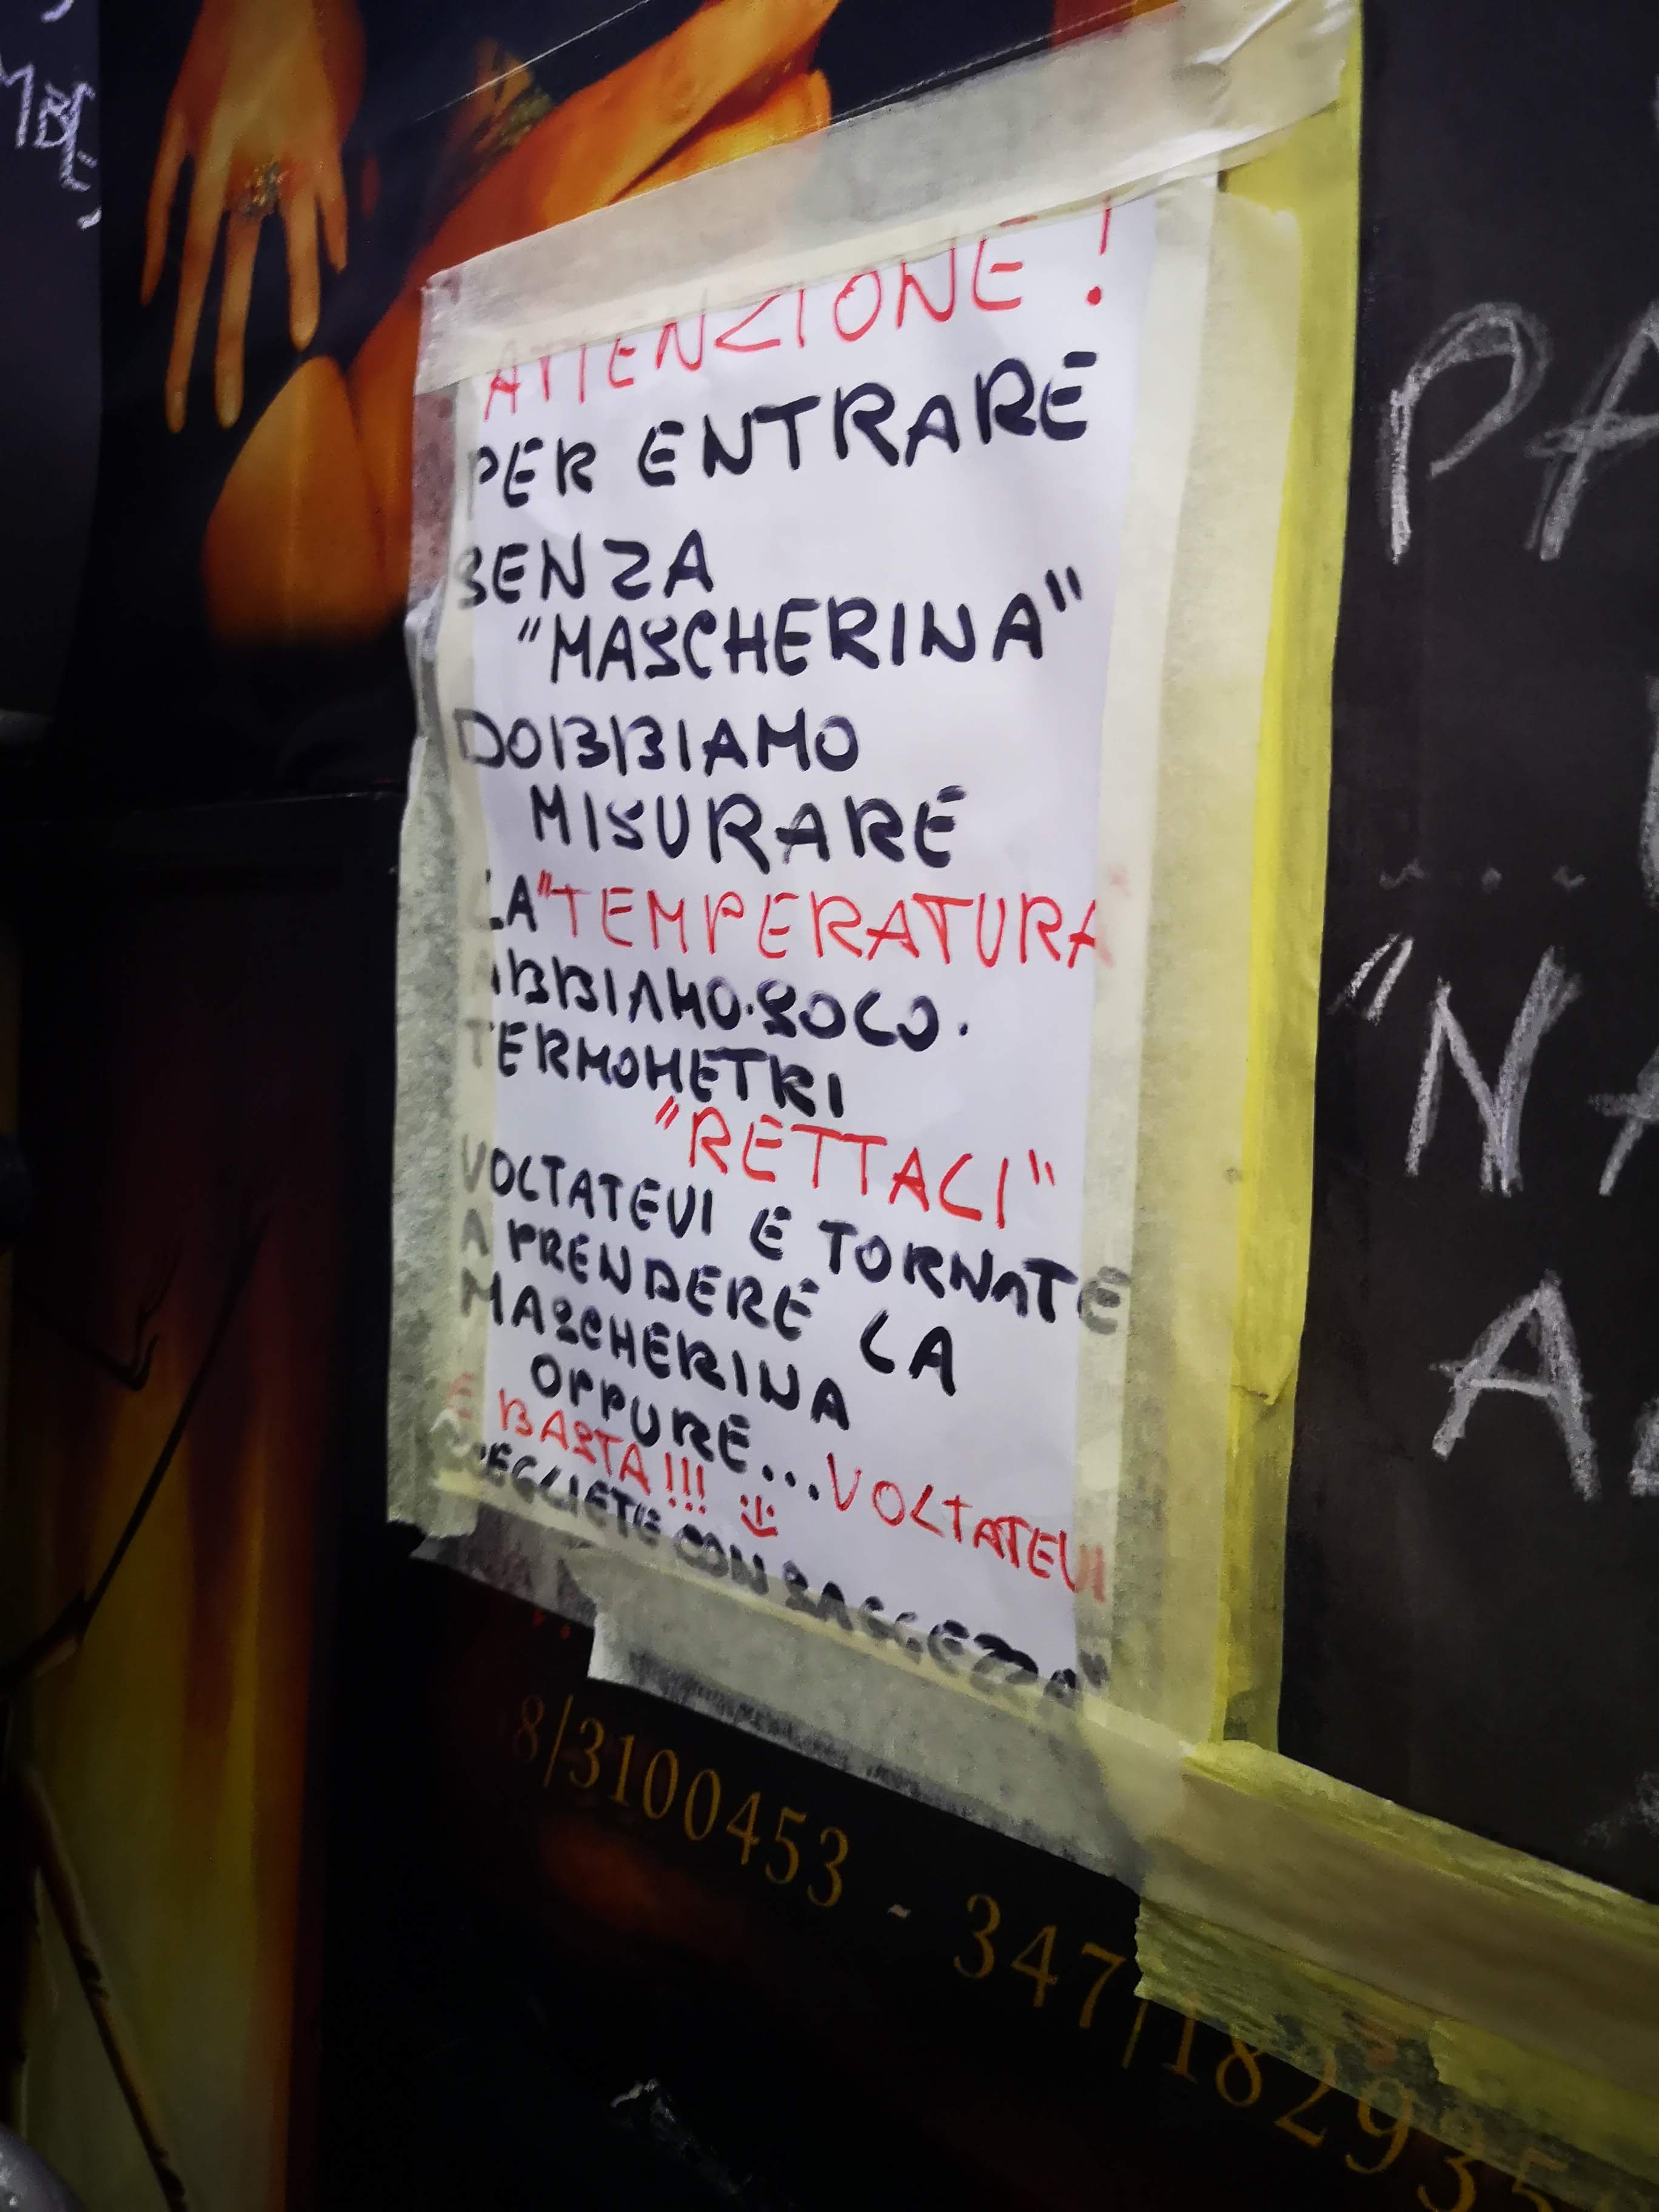 ATTENZIONE!
PER ENTRARE
SENZA
"MASCHERINA"
DOBBIAMO
MISURARE
LA "TEMPERATURA
ABBIAMO.SOLO.
TERMOMETRI
"RETTALI"
VOLTATEVI E TORNATE
A PRENDERE LA
MASCHERINA
OPPURE...VOLTATEVI
E BASTA!!!
SCEGLIETE CON SAGGEZZA"
8/3100453 - 347/182935
PA
...
"NA
A